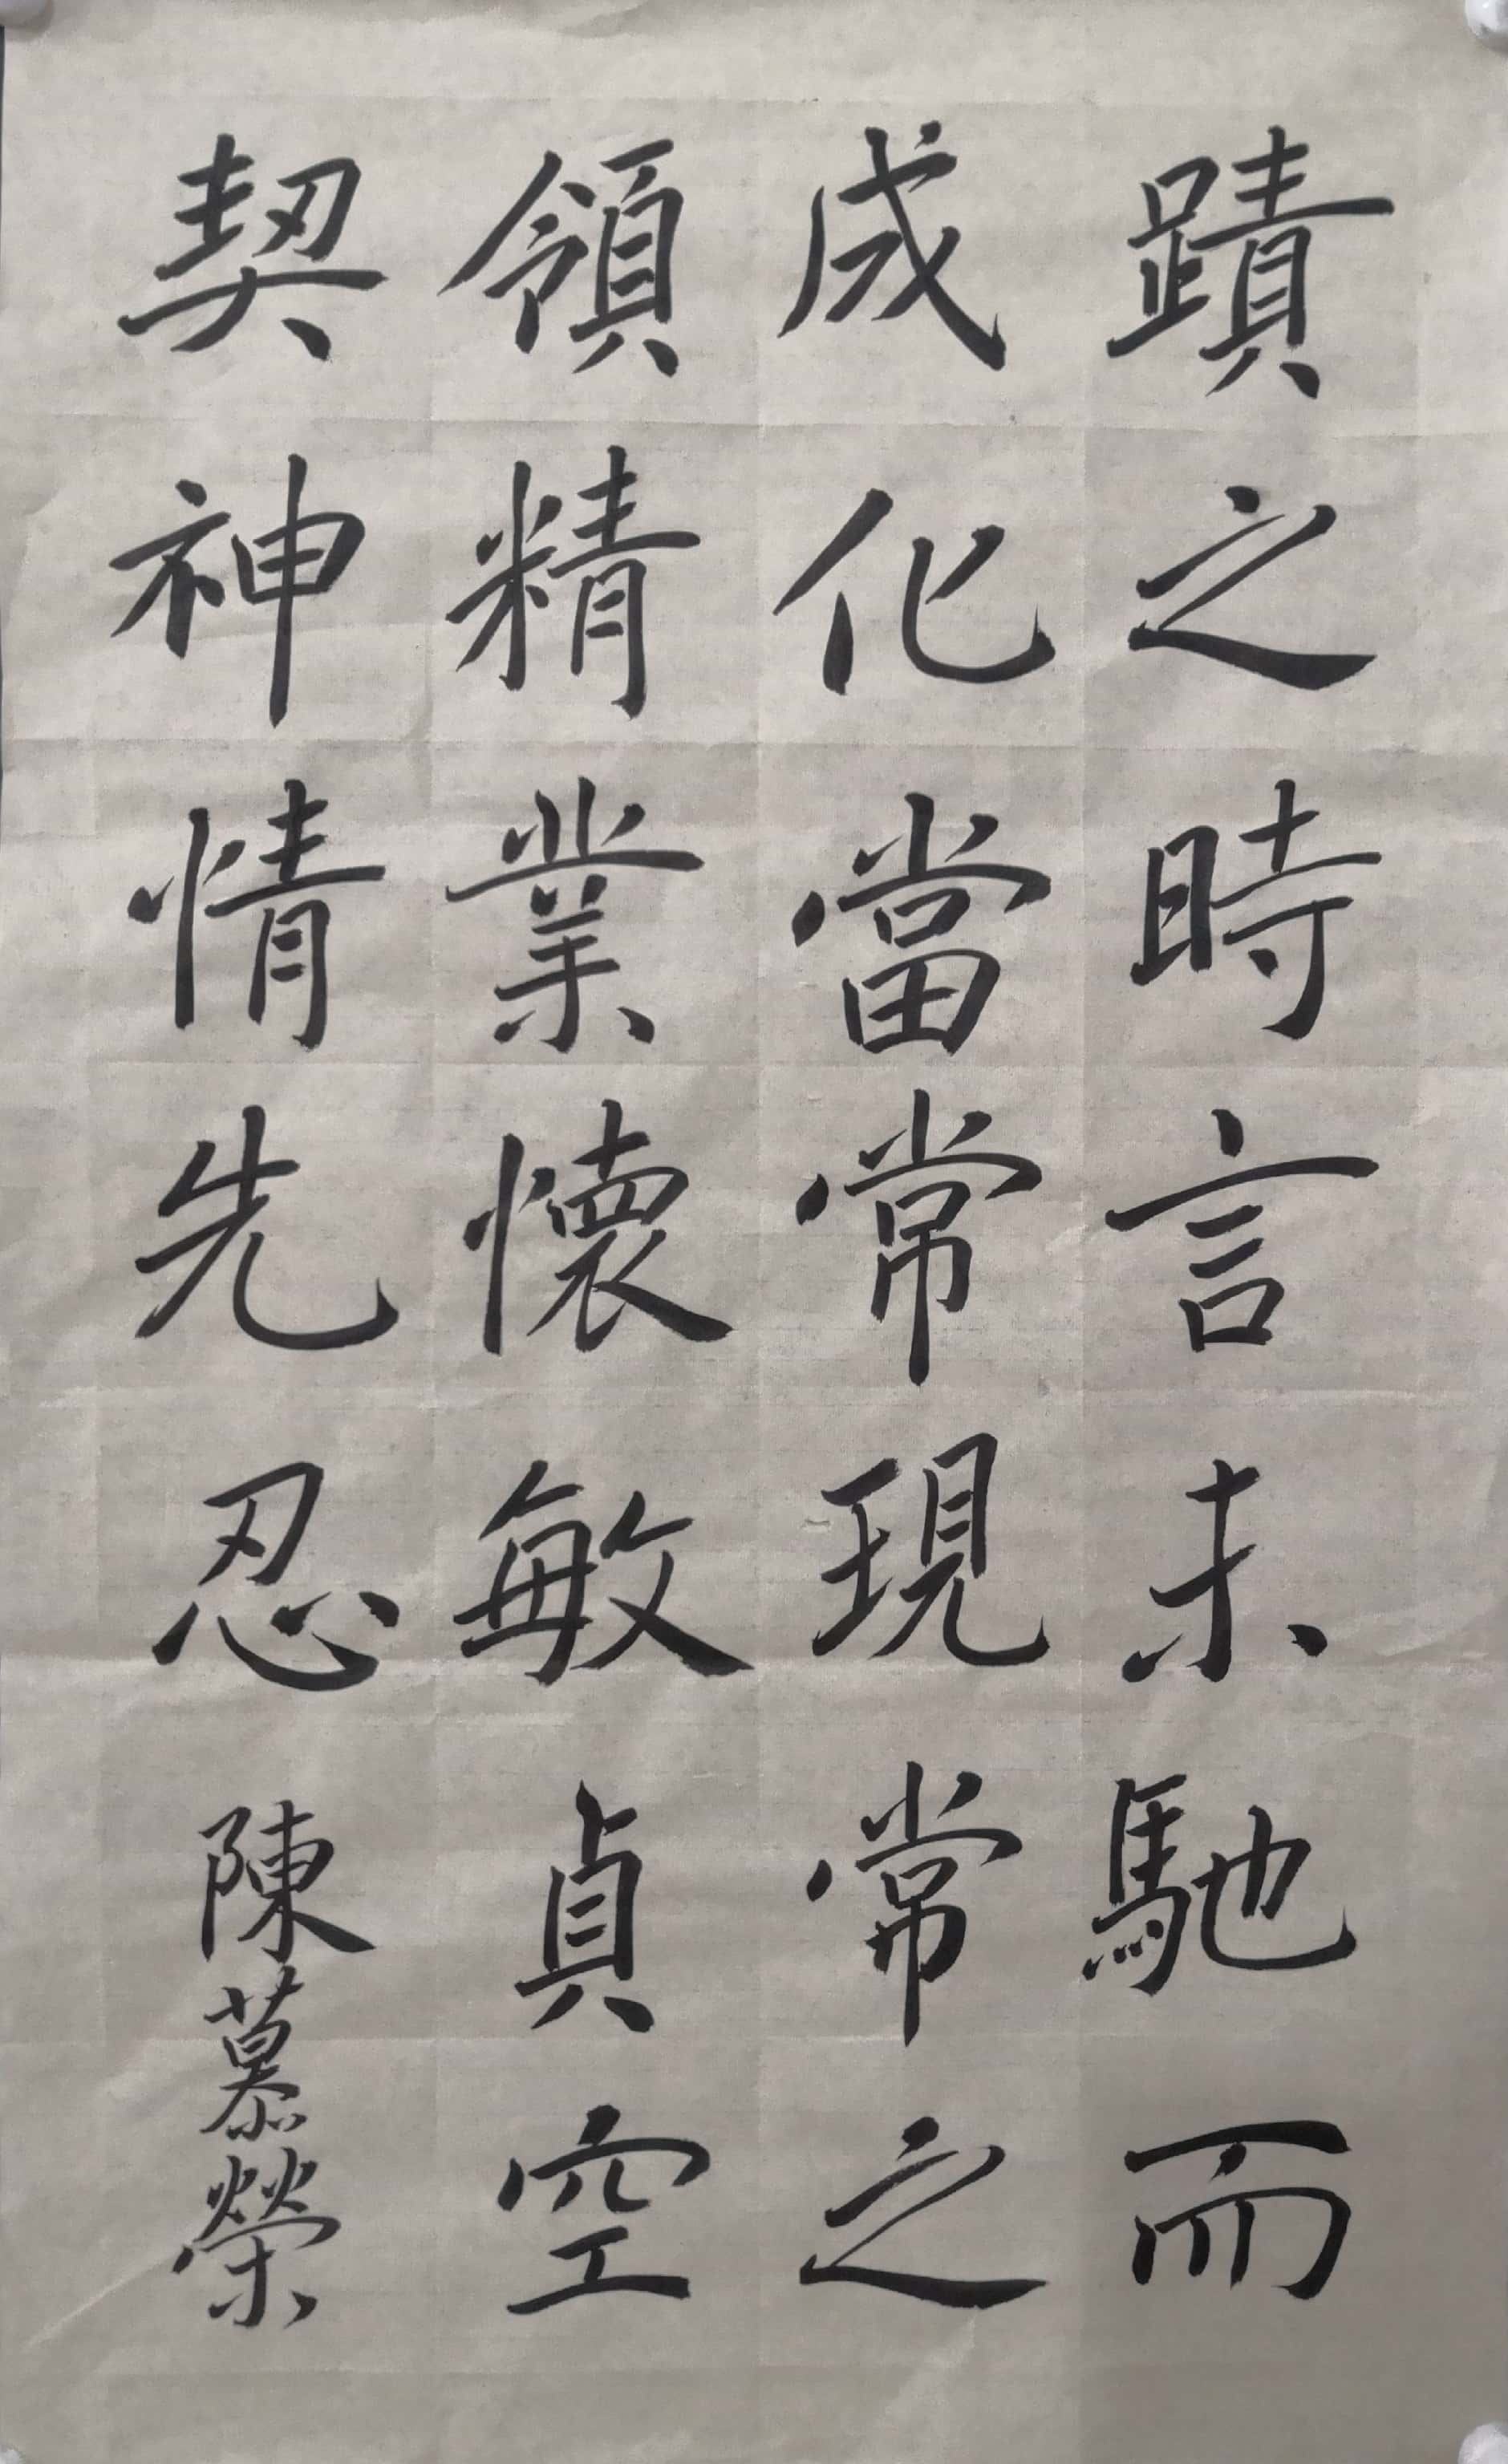 蹟之時言未馳而
成化當常現常之
領精業懷敏貞空
契神情先忍
陳慕榮